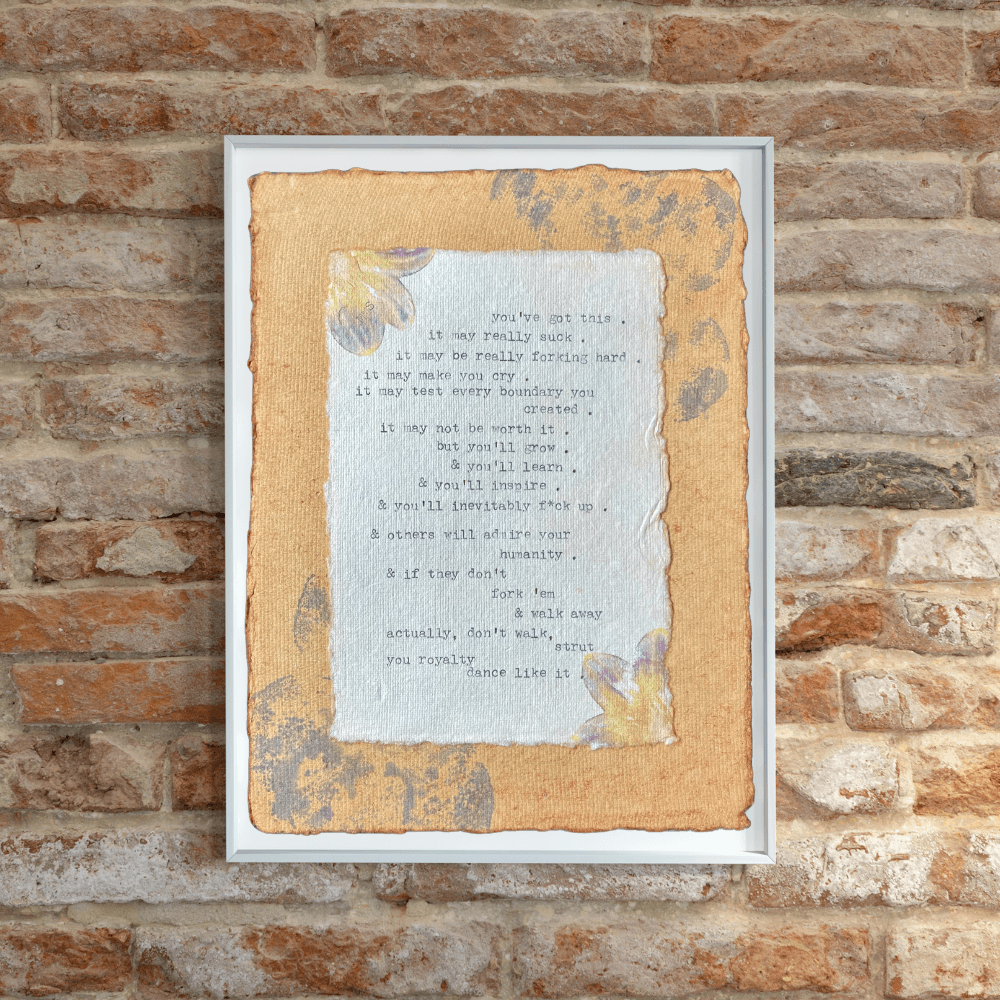 you've got this .
it may really suck .
it may be really forking hard .
it may make you cry .
it may test every boundary you
created .
it may not be worth it .
but you'll grow .
& you'll learn .
& you'll inspire .
& you'll inevitably f*ck up .
& others will admire your
humanity .
& if they don't
fork 'em
& walk away
actually, don't walk,
strut
you royalty
dance like it .